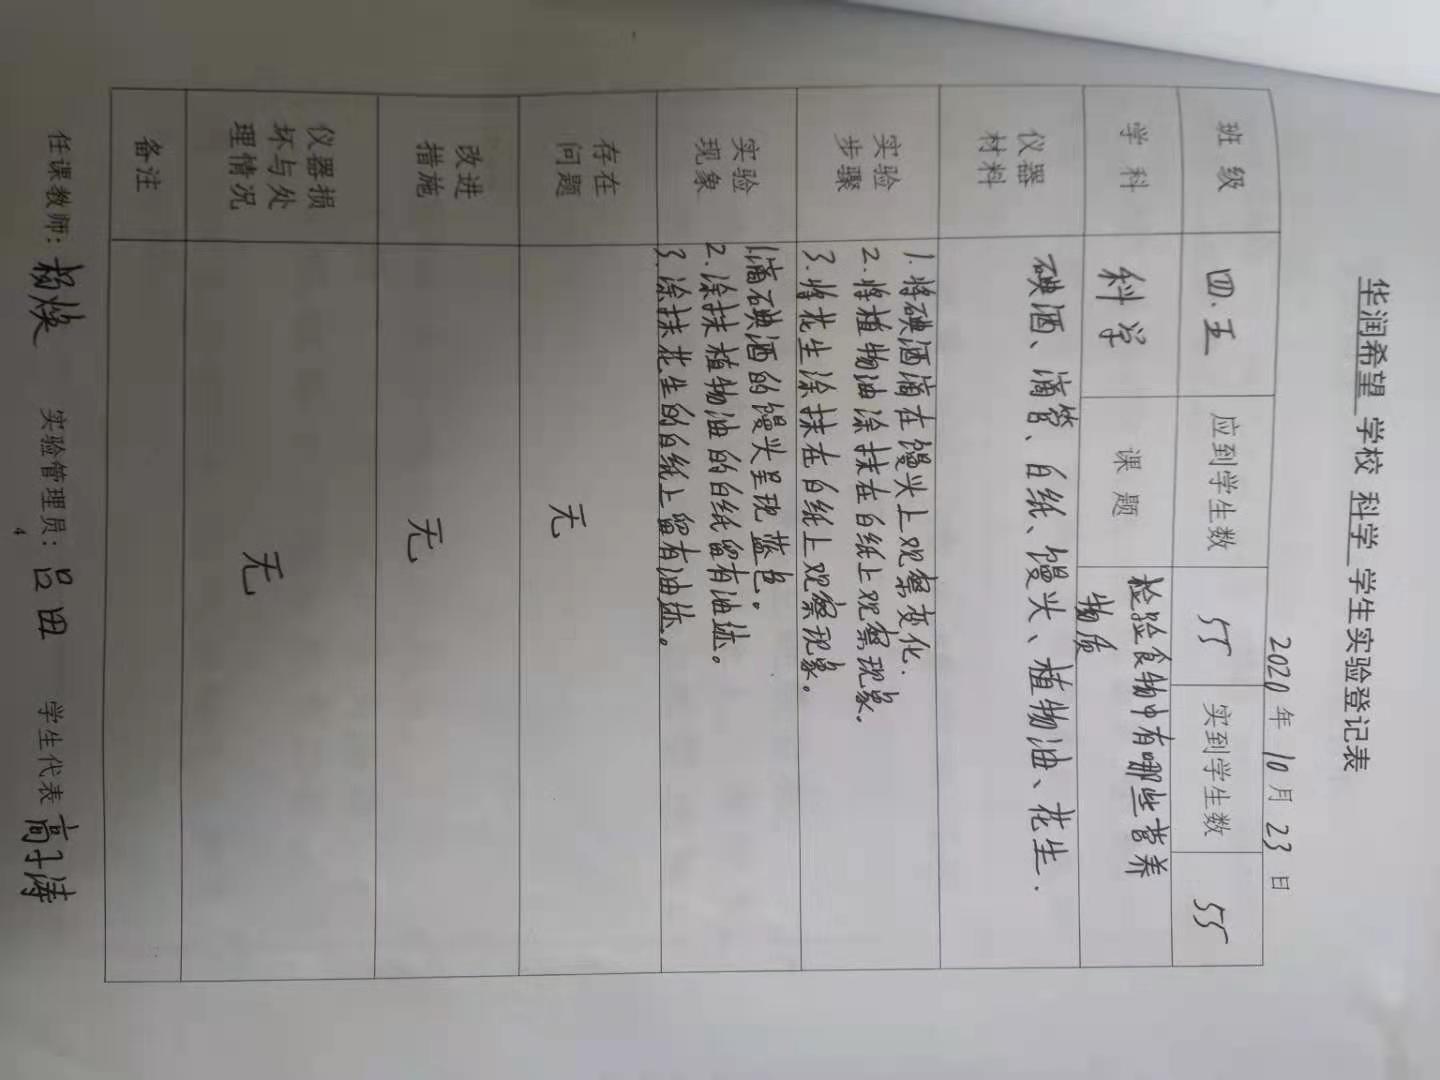 华润希望 学校 科学 学生实验登记表
2020年10月23日
班级 四.五 应到学生数 55 实到学生数 55
学科 科学 课题 检验食物中有哪些营养
物质
仪器
材料
碘酒、滴管、白纸、馒头、植物油、花生.
实验
步骤
1.将碘酒滴在馒头上观察变化.
2.将植物油涂抹在白纸上观察现象.
3.将花生涂抹在白纸上观察现象。
实验
现象
1.滴碘酒的馒头呈现蓝色。
2.涂抹植物油的白纸留有油迹。
3.涂抹花生的白纸上留有油迹。
存在
问题
无
改进
措施
无
仪器损
坏与处
理情况
无
备注
任课教师: 杨焕 实验管理员: 吕田 学生代表 高子涛
4